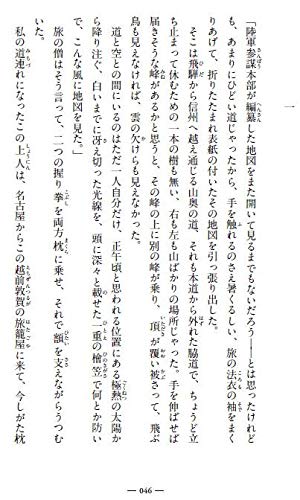 一
「陸軍参謀本部が編纂した地図をまた開いて見るまでもないだろう――とは思ったけれど
も、あまりにひどい道じゃったから、手を触れるのさえ暑くるしい、旅の法衣の袖をまく
りあげて、折りたたまれ表紙の付いたその地図を引っ張り出した。
そこは飛騨から信州へ越え通じる山奥の道、それも本道から外れた脇道で、ちょうど立
ち止まって休むための一本の樹も無い、右も左も山ばかりの場所じゃった。手を伸ばせば
届きそうな峰があるかと思うと、その峰の上に別の峰が乗り、頂が覆い被さって、飛ぶ
鳥も見えなければ、雲の欠けらも見えなかった。
道と空との間にいるのはただ一人自分だけ、正午頃と思われる位置にある極熱の太陽か
ら降り注ぐ、白いまでに冴え切った光線を、頭に深々と載せた一重の檜笠で何とか防い
で、こんな風に地図を見た。」
旅の僧はそう言って、二つの握り拳を両方枕に乗せ、それで額を支えながらうつむ
私の道連れになったこの上人は、名古屋からこの越前敦賀の旅籠屋に来て、今しがた枕
046